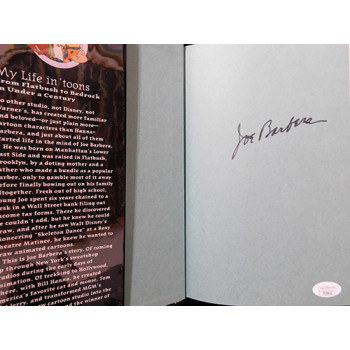 My Life in 'toons
From Flatbush to Bedrock
in Under a Century
No other studio, not Disney, not
Warner's, has created more familiar
and beloved—or just plain more—
cartoon characters than Hanna-
Barbera, and just about all of them
started life in the mind of Joe Barbera.
He was born on Manhattan's Lower
East Side and was raised in Flatbush,
Brooklyn, by a doting mother and a
father who made a bundle as a popular
barber, only to gamble most of it away
before finally bowing out on his family
altogether. Fresh out of high school,
young Joe spent six years chained to a
desk in a Wall Street bank filling out
income tax forms. There he discovered
he couldn't add, but he knew he could
draw, and after he saw Walt Disney's
pioneering "Skeleton Dance" at a Roxy
Theatre Matinee, he knew he wanted to
draw animated cartoons.
This is Joe Barbera's story. Of coming
up through New York's sweatshop
studios during the early days of
animation. Of trekking to Hollywood,
where, with Bill Hanna, he created Tom
America's favorite cat and mouse, Tom
and Jerry, and transformed MGM's
cartoon studio into the
winner of
Joe Barbera